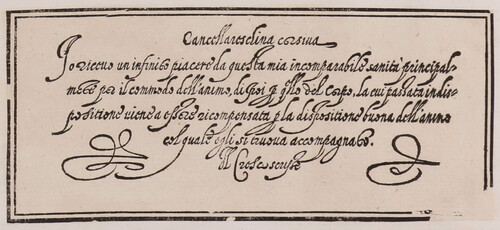 Cancellareschina corsiva
Io riceuo un infinito piacere da questa mia incomparabile sanità principal-
mẽte per il commodo dell'animo, di poi p q̃llo del Corpo, la cui passata indis-
positione viene a essere ricompensata p la dispositione buona dell'animo
col quale egli si truoua accompagnato.
Il Cresci scriuea